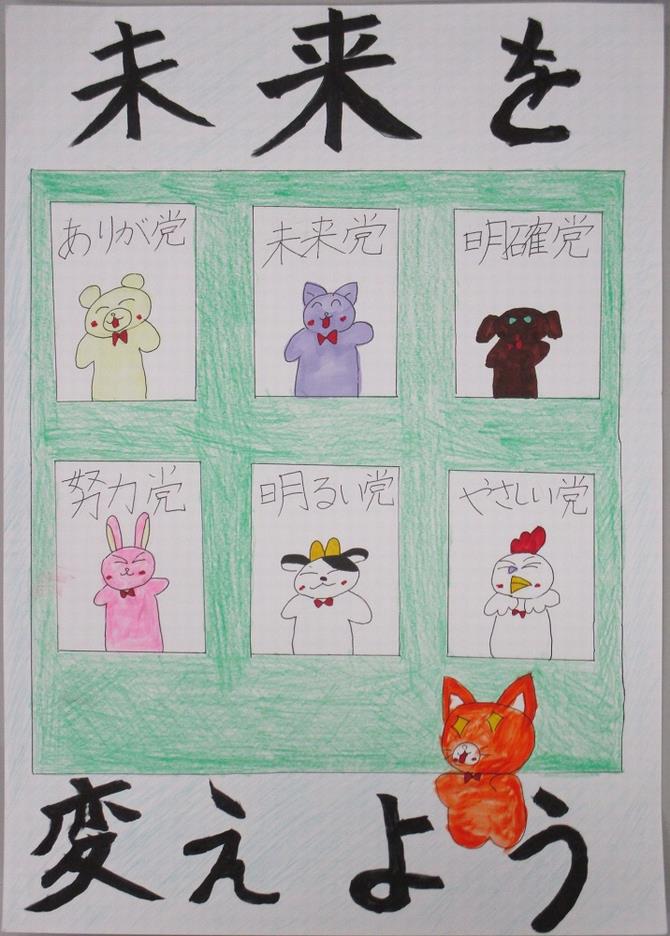 未来を
ありが党
未来党
明確党
努力党
明るい党
やさしい党
変えよう